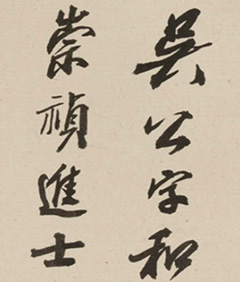 吳公字和
崇禎進士